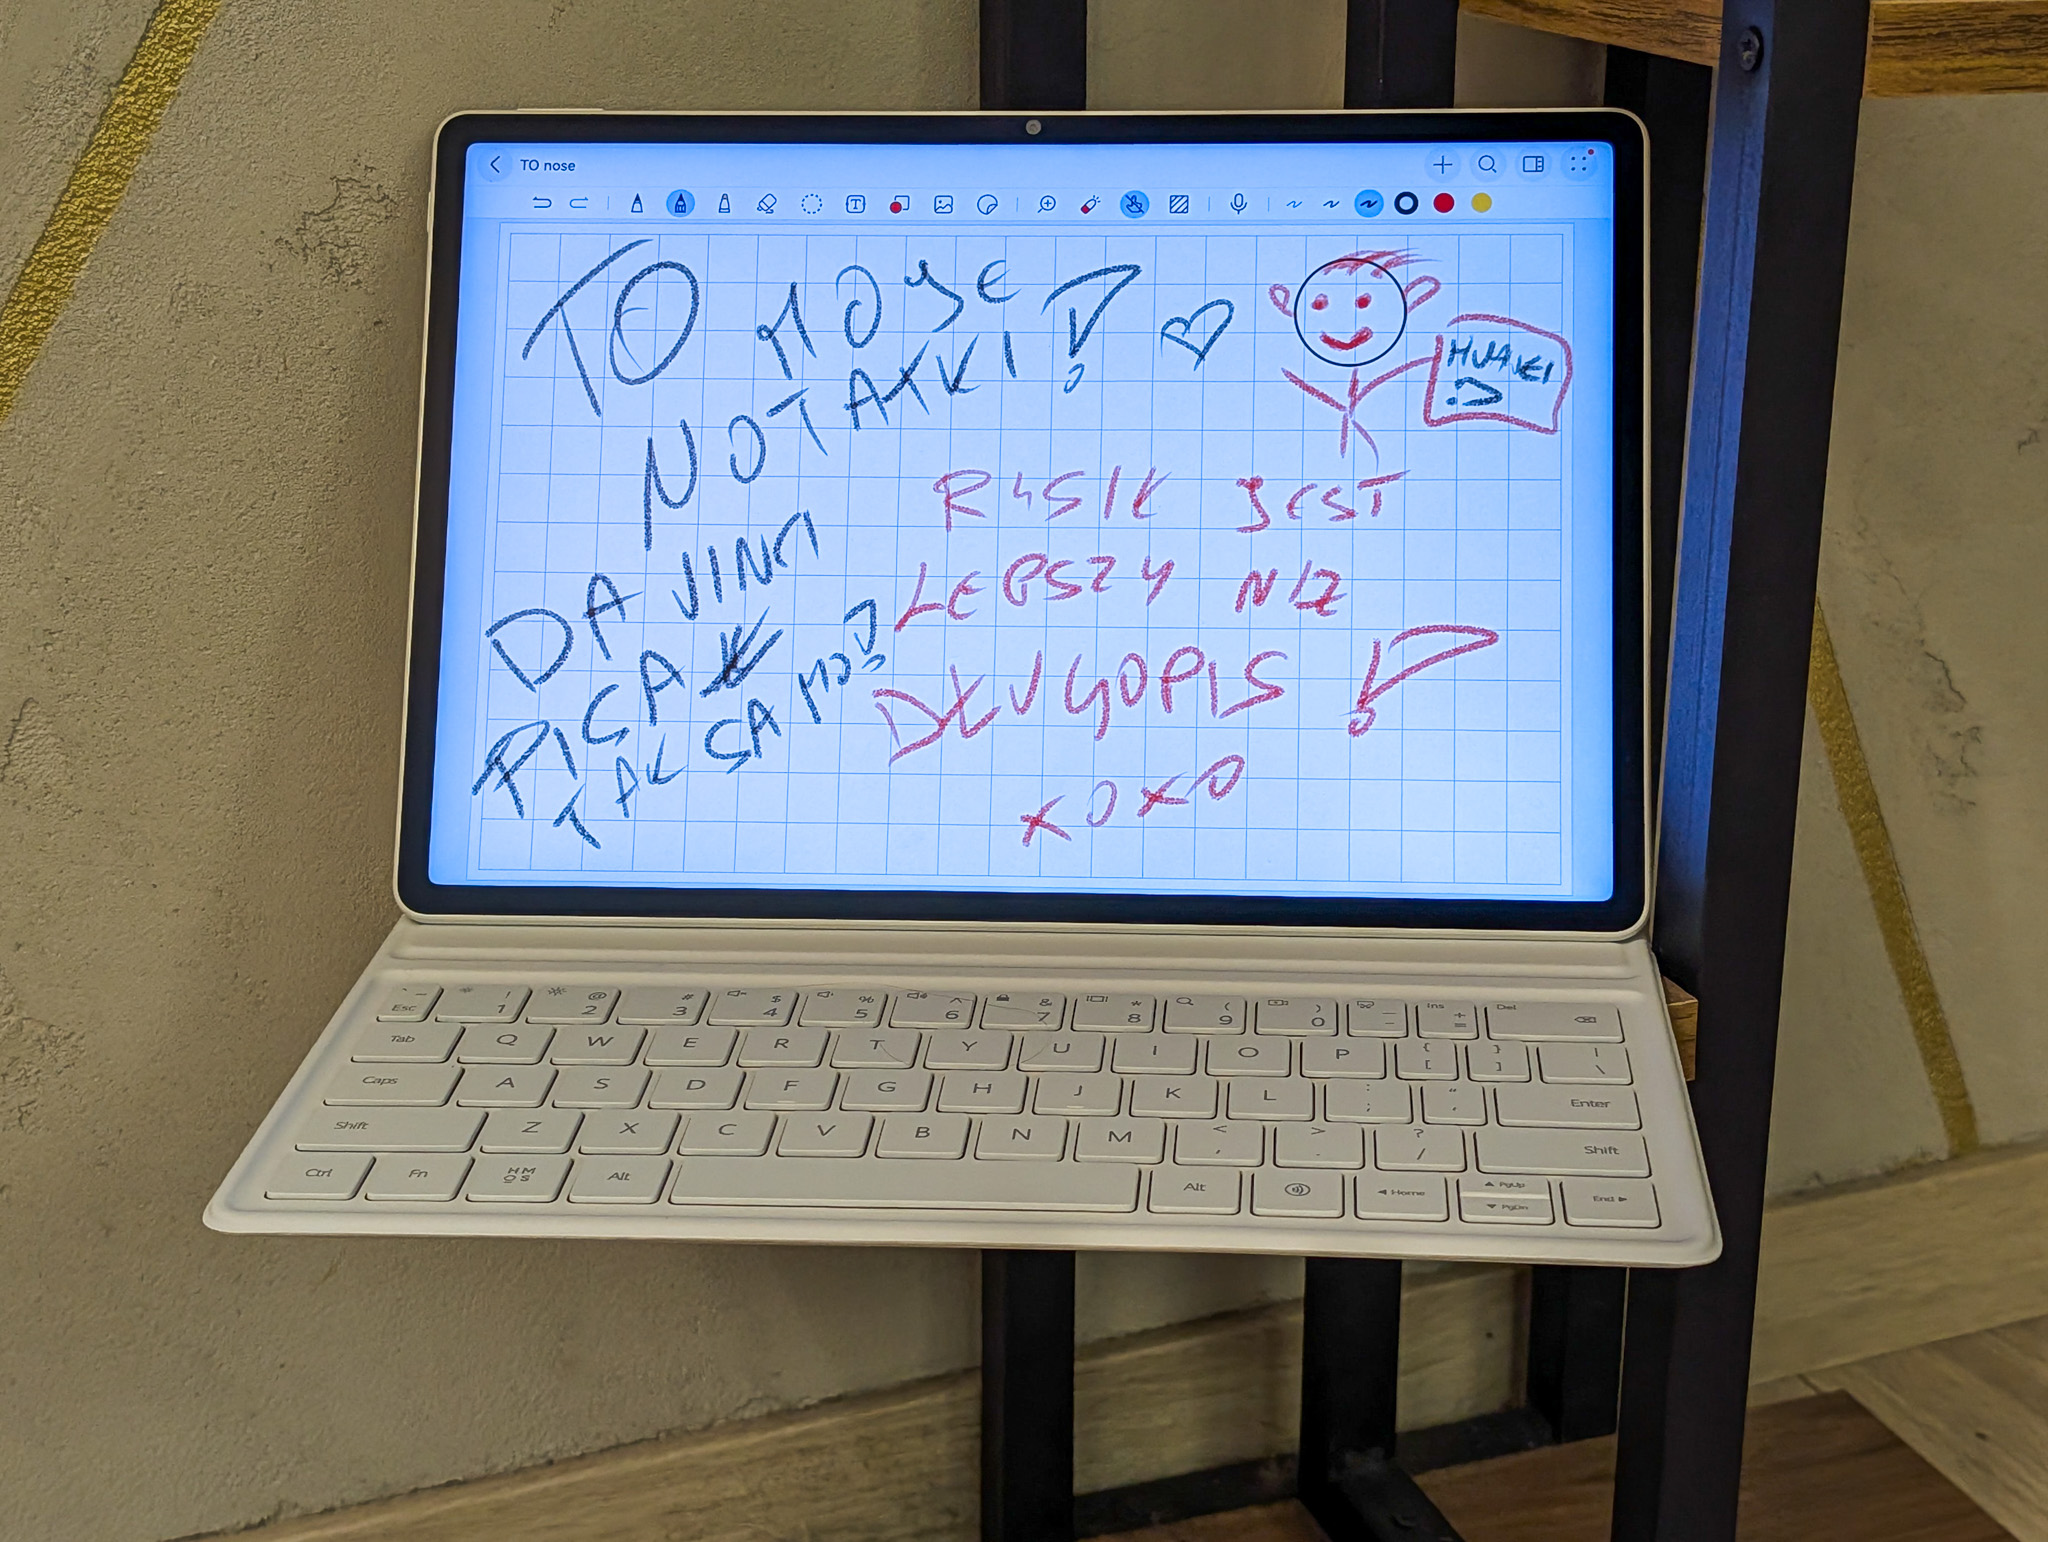 TO nose
TO MOJE
NOTATKI!
HUAWEI
:D
DA VINCI
PISAŁ
TAK SAMO!
RYSIK JEST
LEPSZY NIZ
DŁUGOPIS!
XOXO
Esc ! 1 @ 2 # 3 $ 4 % 5 ^ 6 & 7 * 8 ( 9 ) 0 _ - Ins + = Del
Tab Q W E R T Y U I O P { [ } ] | \
Caps A S D F G H J K L : ; " ' Enter
Shift Z X C V B N M < , > . ? / Shift
Ctrl Fn HMOS Alt Alt Home PgUp PgDn End